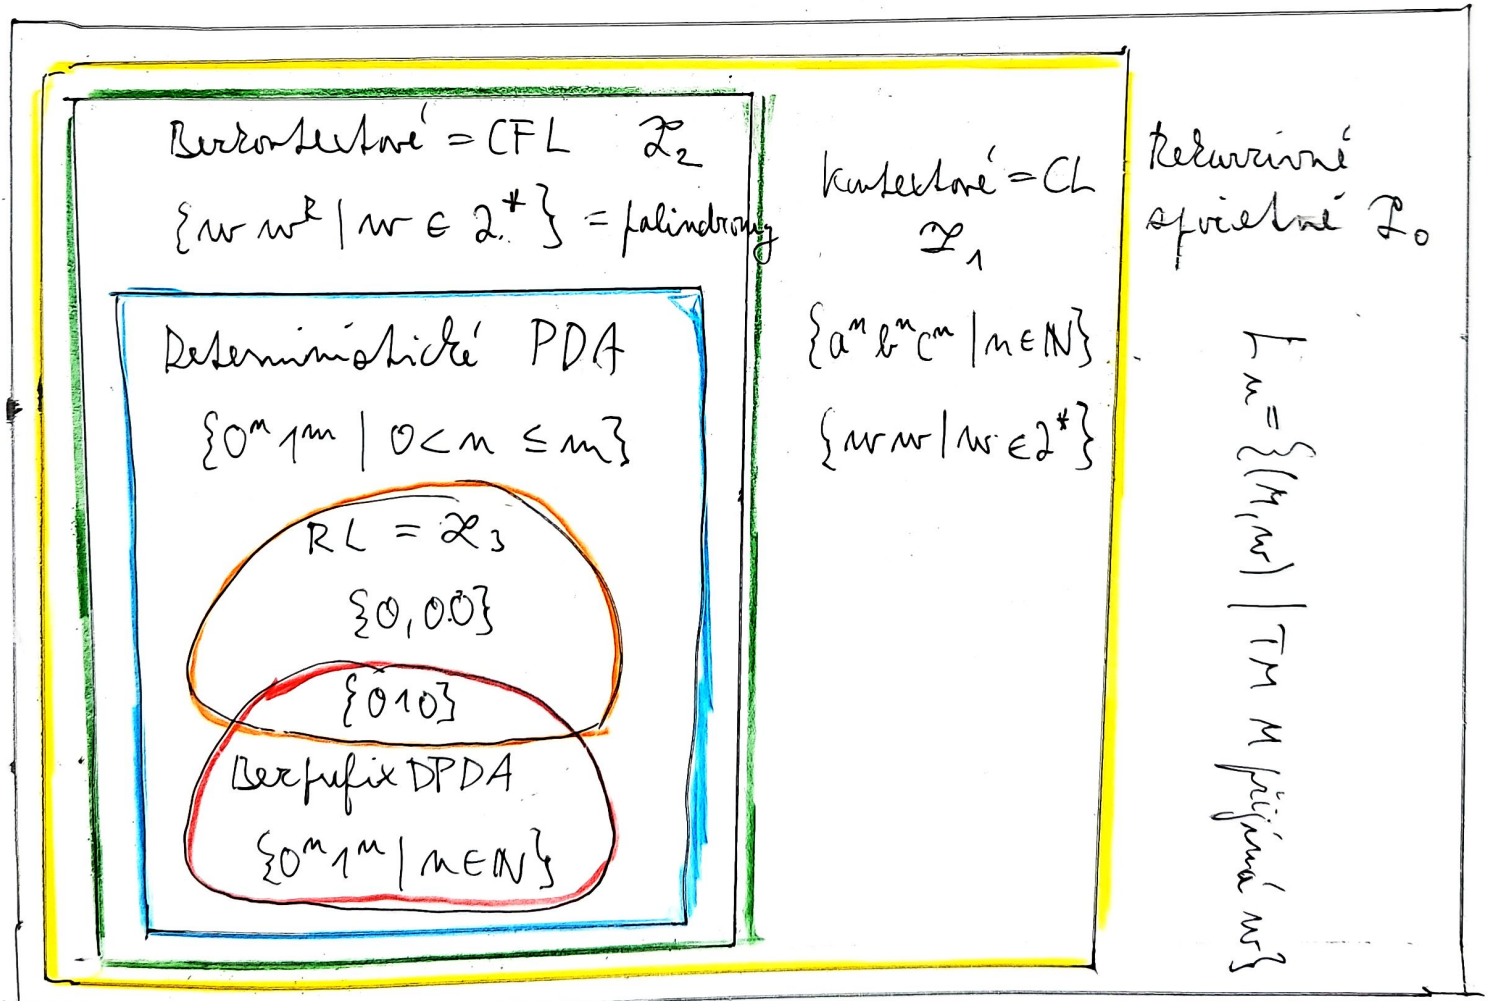 Bezkontextové = CFL ℒ₂
{w wᴿ | w ∈ 2*} = palindromy
Deterministické PDA
{0ⁿ1ᵐ | 0 < n ≤ m}
RL = ℒ₃
{0, 00}
{010}
Bezprefix DPDA
{0ⁿ1ⁿ | n ∈ ℕ}
Kontextové = CL
ℒ₁
{aⁿbⁿcⁿ | n ∈ ℕ}
{ww | w ∈ 2*}
Rekurzivně
spočetné ℒ₀
Lᵤ = {(M, w) | TM M přijímá w}